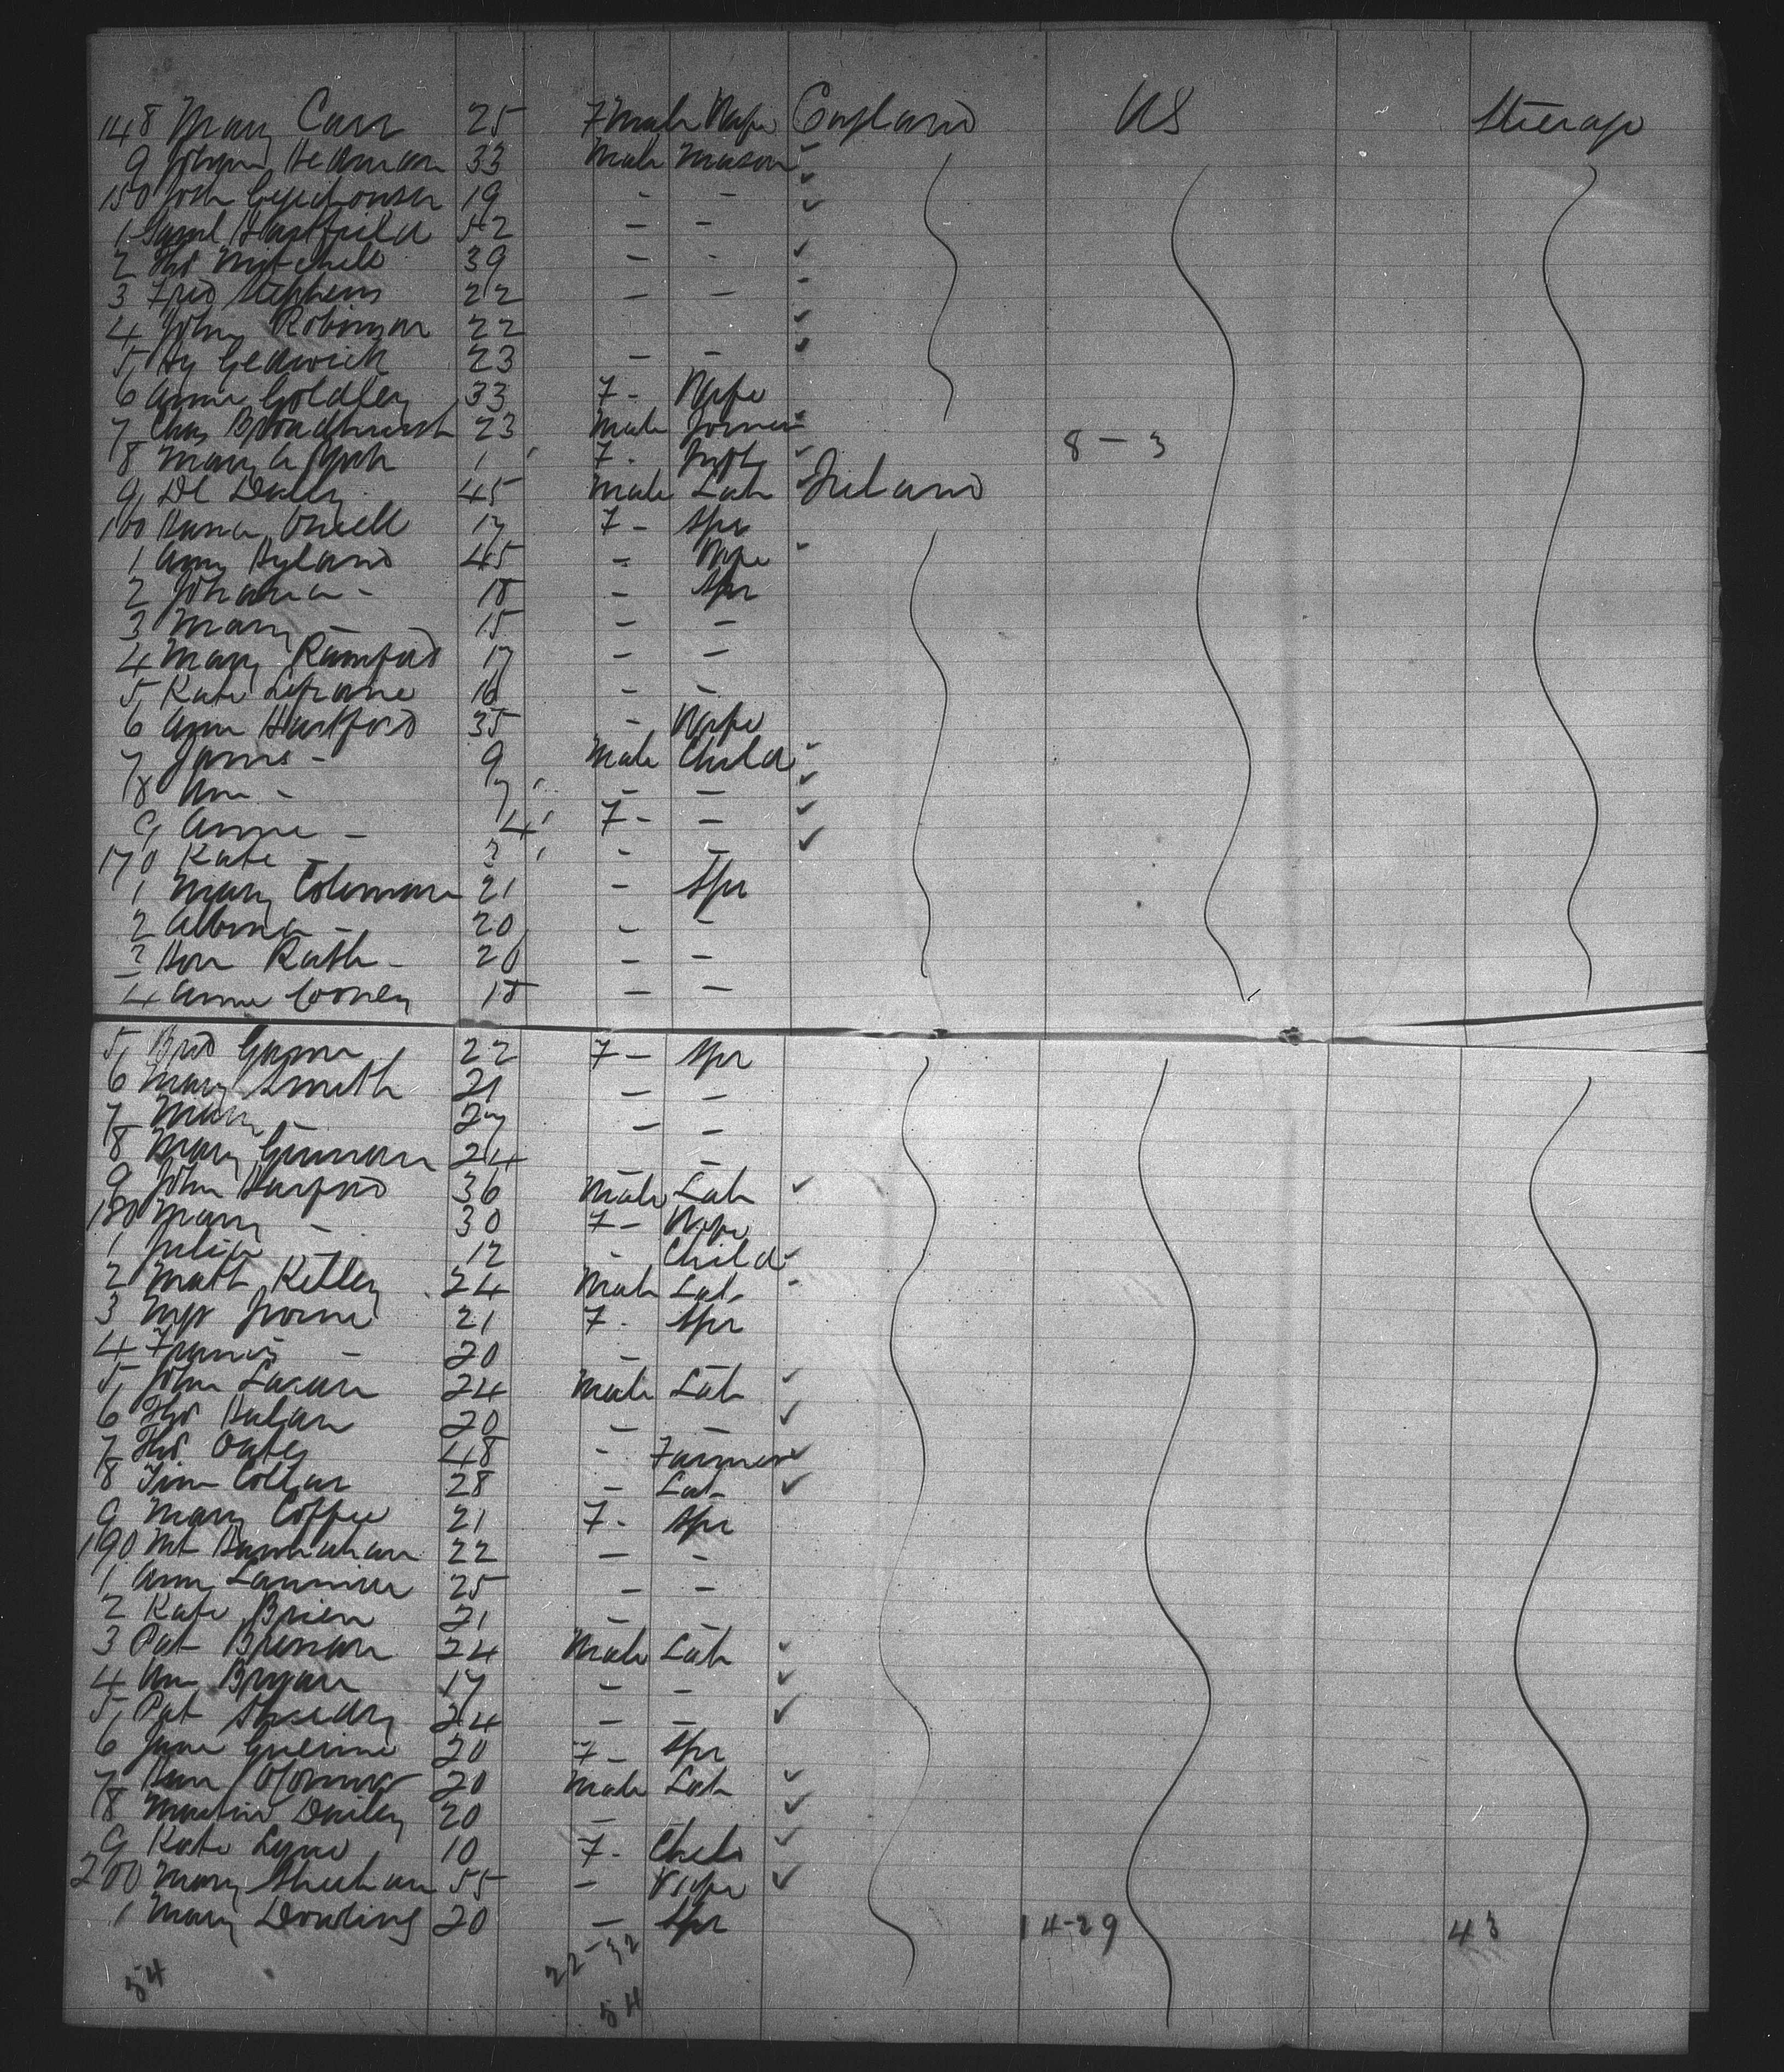 148 Mary Carr 25 Female Wife England US Steerage
9 Johann Hedman 33 Male Mason
150 Josh 19 - -
1 Saml Hartfield 52 - -
2 Thos Mitchell 39 - -
3 Fred Stephens 22 - -
4 John Robinson 22
5 Hy Gedwick 23 - -
6 Annie Goldley 33 F - Wife
7 Chas Broadhurst 23 Male Joiner
8 Mary A 1 F - Inft 8-3
9 Dl Dally 45 Male Lab Ireland
160 Hana Oneill 17 F - Spr
1 Amy Hyland 45 - Wife
2 Johanna - 18 - Spr
3 Mary - 15 - -
4 Mary Ramford 17 - -
5 Kate 16 - -
6 Ann Hartford 35 - Wife
7 James - 9 Male Child
8 - 7 - -
9 Annie - 4 F - -
170 Kate - - -
1 Mary Coleman 21 - Spr
2 Albina - 20 - -
3 Hon Rath - 20 - -
4 Annie Cooney 18 - -
5 Brid 22 F - Spr
6 Mary Smith 21 - -
7 Mary - 27 - -
8 Mary 24 - -
9 John Harford 36 Male Lab
180 Mary - 30 F - Wife
1 Julia - 12 - Child
2 Matt Kelley 24 Male Lab
3 21 F - Spr
4 Francis - 20 -
5 John 24 Male Lab
6 Thos 20 - -
7 Thos Oates 48 - Farmer
8 Tim 28 - Lab
9 Mary Coffee 21 F - Spr
190 Mt 22 - -
1 Ann 25 - -
2 Kate Brien 21 - -
3 Pat Brennan 24 Male Lab
4 Bryan 17 - -
5 Pat Sheedy 24 - -
6 Jane Guerine 20 F - Spr
7 20 Male Lab
8 Martin Dailey 20 -
9 Kate Lyne 10 F - Child
200 Mary Sheehan 55 - Wife
1 Mary Dowling 20 - Spr 14-29 43
54 22-32
54